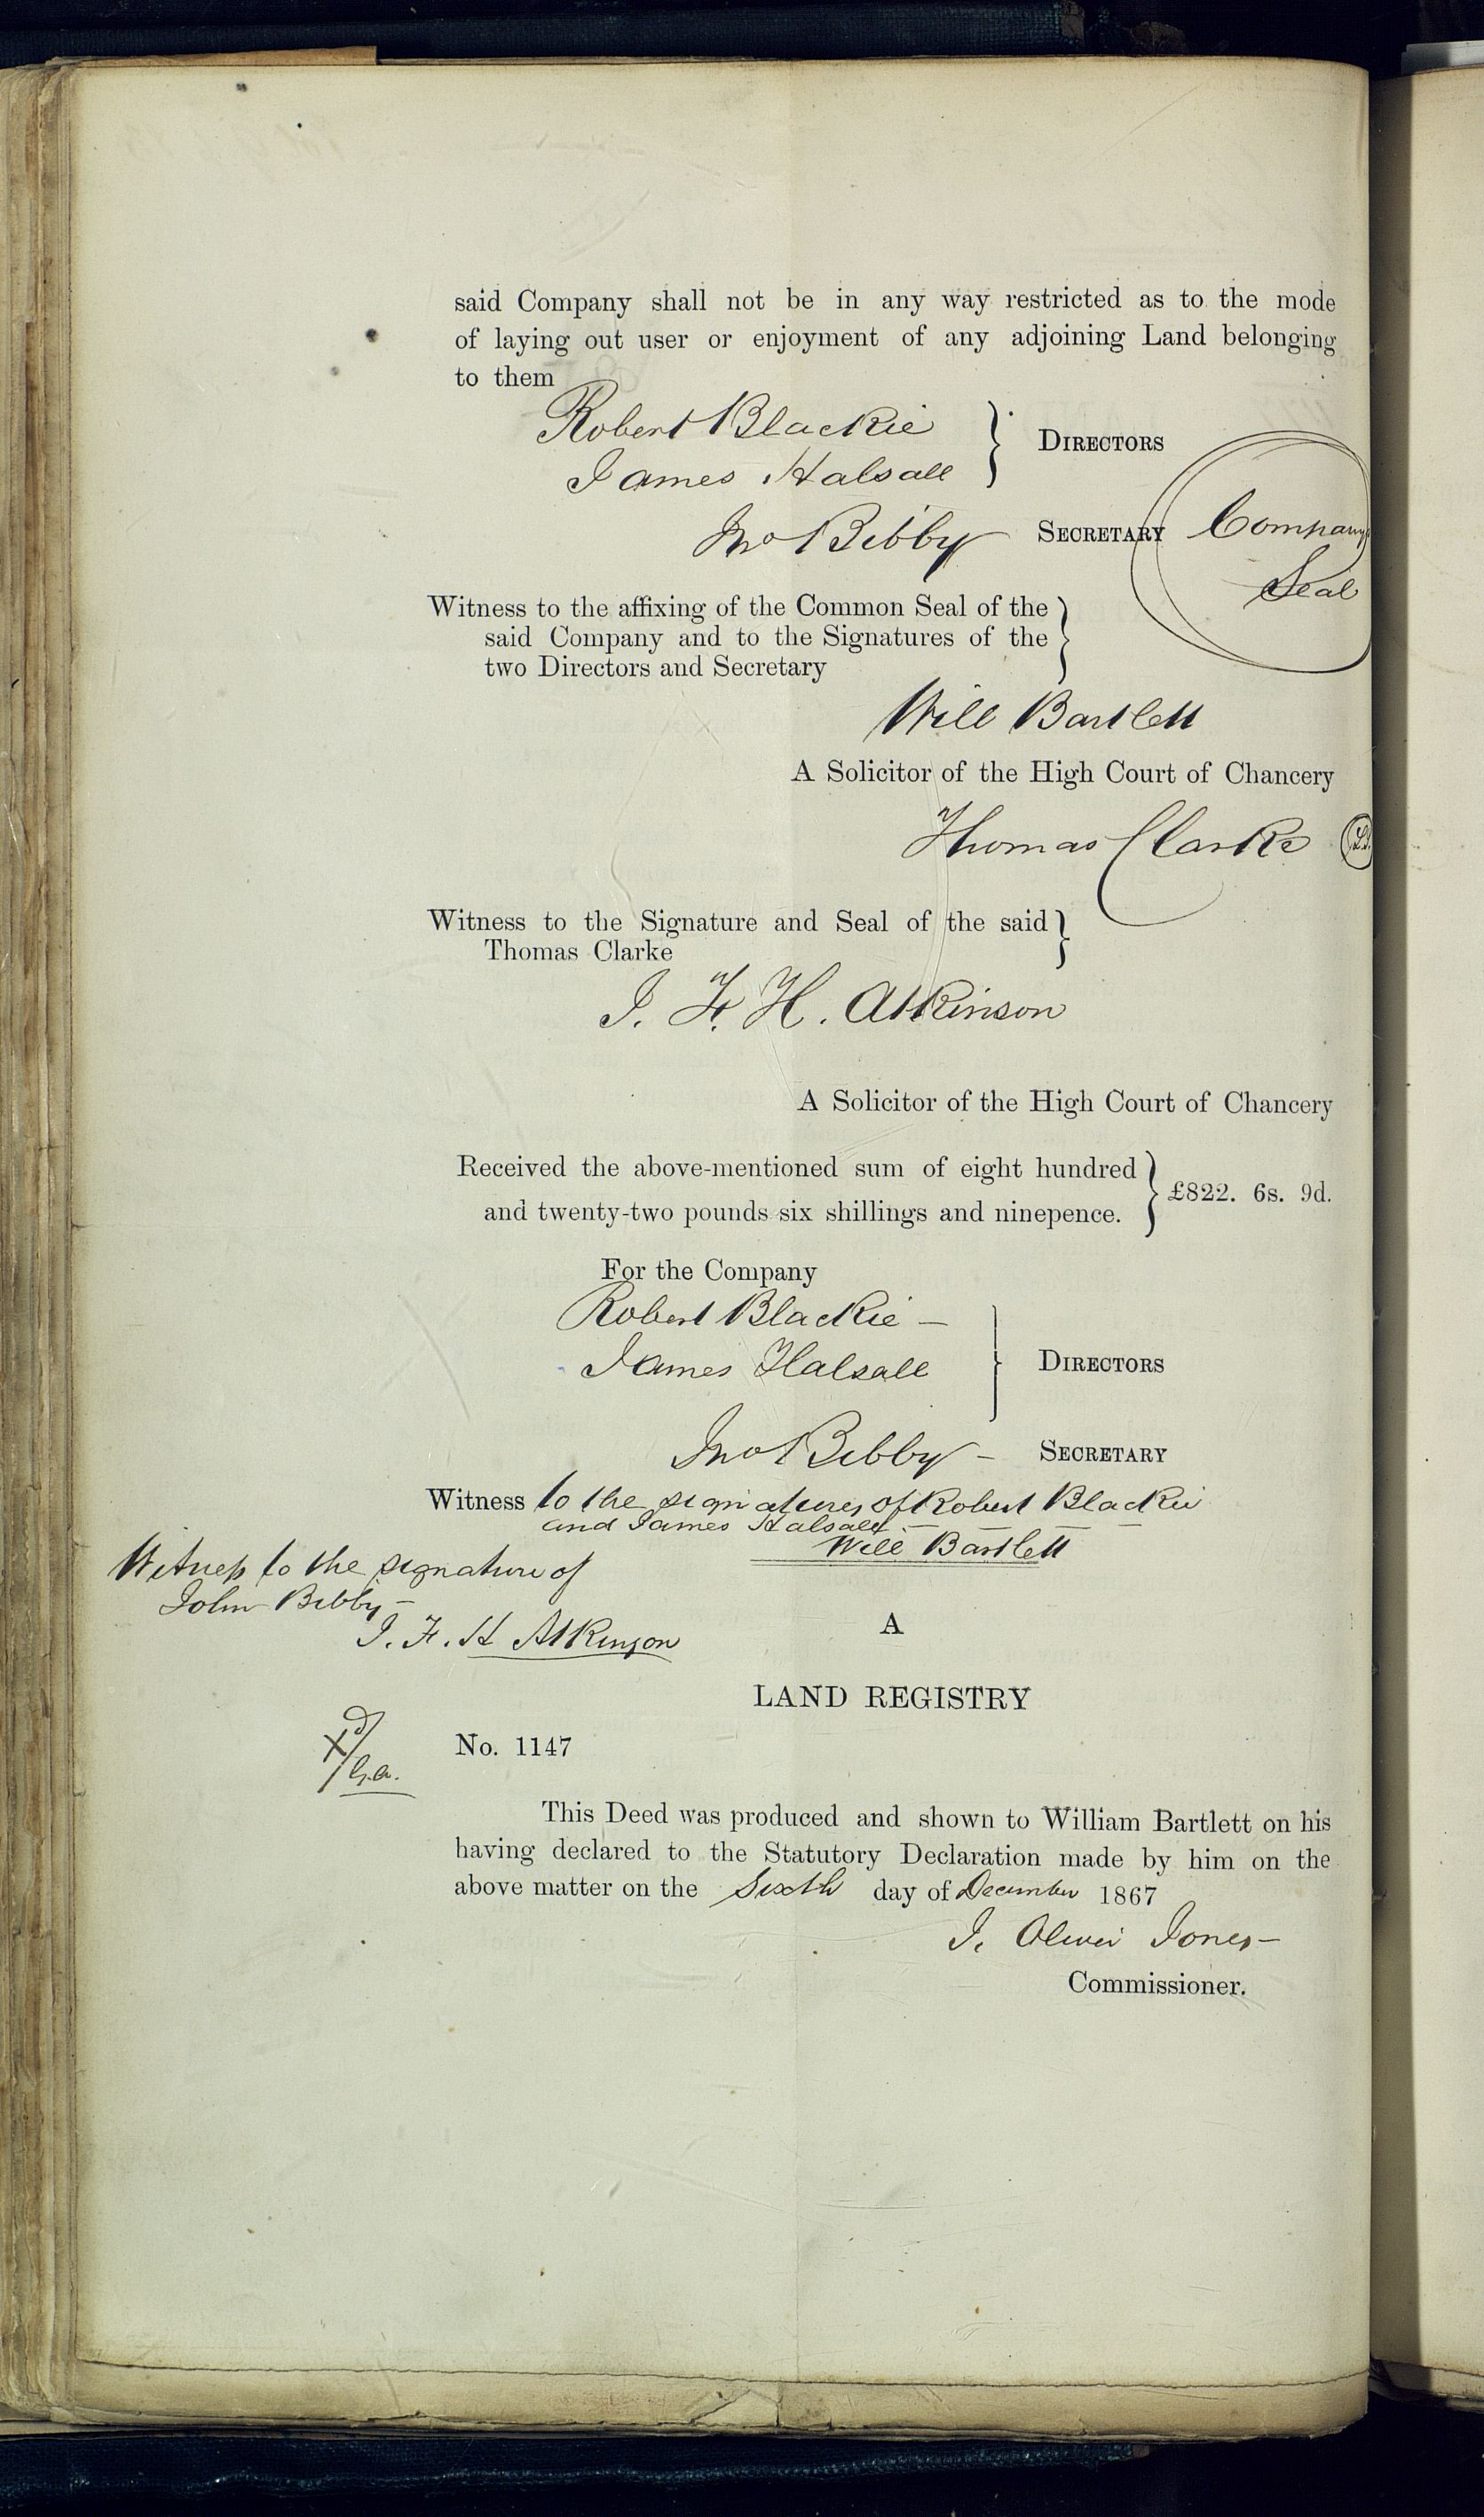 said Company shall not be in any way restricted as to the mode
of laying out user or enjoyment of any adjoining Land belonging
to them
Robert Blackie
James Halsall
} DIRECTORS
Jno Bibby SECRETARY
Company
Seal
Witness to the affixing of the Common Seal of the
said Company and to the Signatures of the
two Directors and Secretary
}
Will Bartlett
A Solicitor of the High Court of Chancery
Thomas Clarke
Witness to the Signature and Seal of the said
Thomas Clarke
}
J. F. H. Atkinson
A Solicitor of the High Court of Chancery
Received the above-mentioned sum of eight hundred
and twenty-two pounds six shillings and ninepence.
} £822. 6s. 9d.
For the Company
Robert Blackie –
James Halsall
} DIRECTORS
Jno Bibby – SECRETARY
Witness to the signatures of Robert Blackie
and James Halsall –
Will Bartlett
Witness to the signature of
John Bibby –
J. F. H Atkinson
A
LAND REGISTRY
No. 1147
This Deed was produced and shown to William Bartlett on his
having declared to the Statutory Declaration made by him on the
above matter on the Sixth day of December 1867
J. Oliver Jones –
Commissioner.